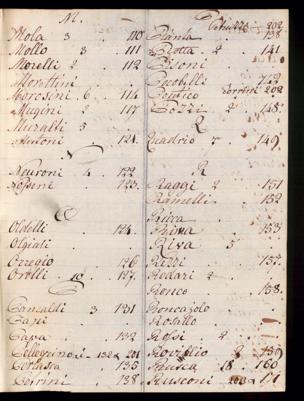 M.
Mola 3 . 110
Mollo 3 . 111
Morelli 2 112
Morettini
Moresini 6 . 114
Mugini 2 . 117
Muralti 5
124.
N
Neuroni 4 . 122
123.
O
Oldelli 124.
Olgiati
Orregio 126
Orelli 10 . 127
P
Pancaldi 3 131
Papi
Pava . . 132
Pellegrini 132 & 201
135
Petrini . 138
Petruzzi . 202
138.
Piotta . 2 141
Pisoni
Pocobelli 142
Pontico 202
Pozzi 2 148
Q
Quadrio 5 149
R
Raggi 2 . 151
Ramelli . 152
Ricca
Riva 153
Riva 5
Rizzi 157.
Rodari 2
Ronco . 158.
Roncajolo
Rosallo
Rossi . 2
Roviglio 2 159
Rusca 18 . 160
Rusconi 203 & 171